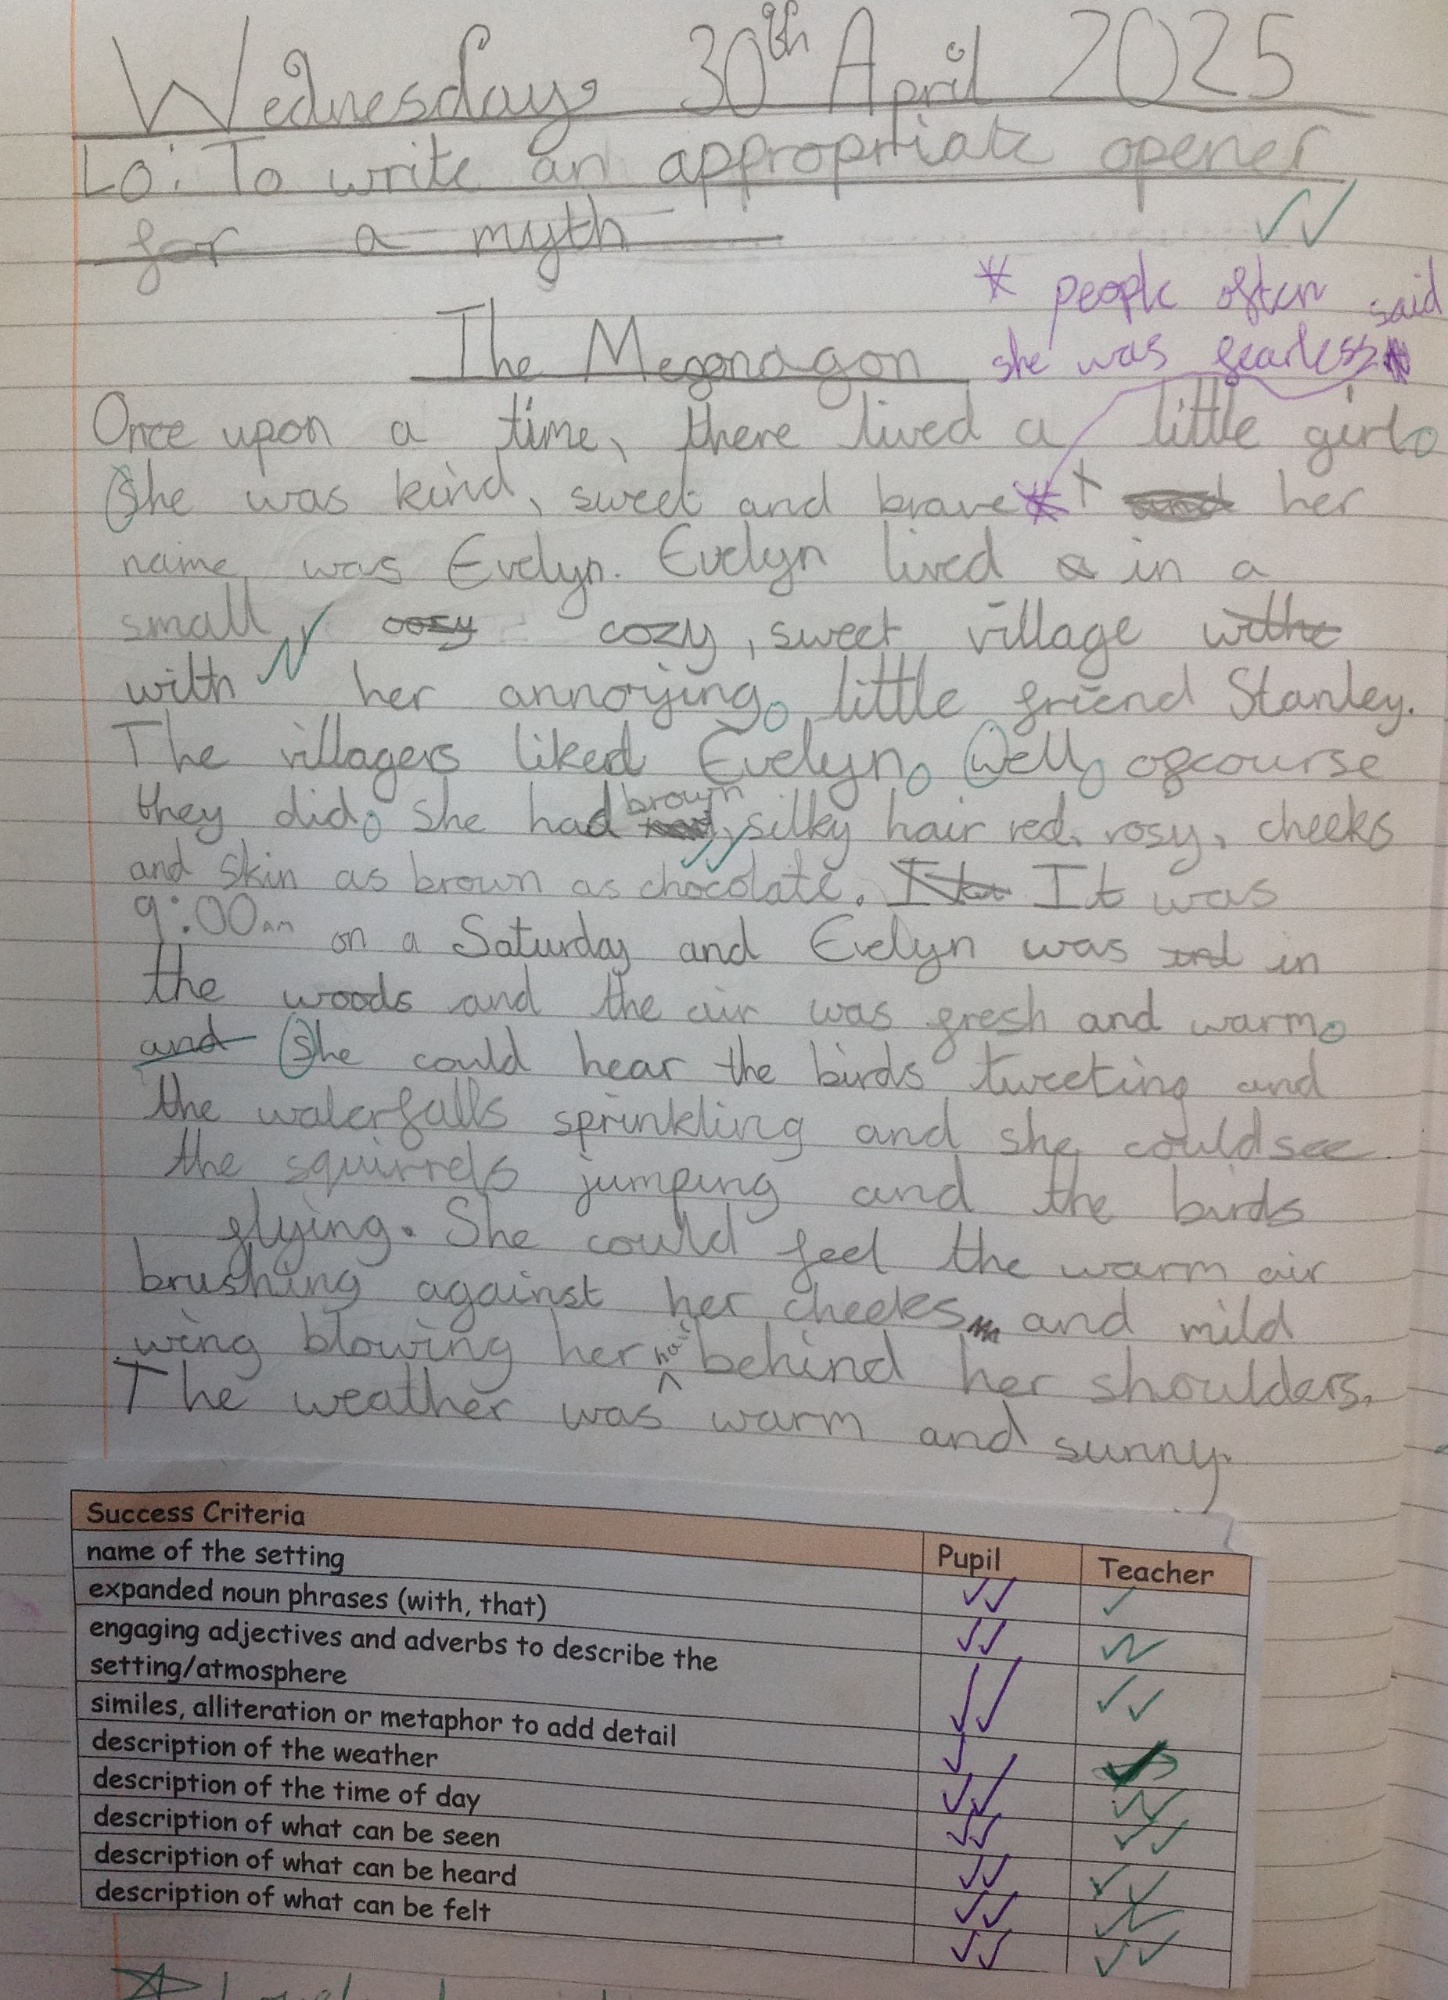 Wednesday 30th April 2025
Lo: To write an appropriate opener
for a myth
* people often said
she was fearless
The Megonagon
Once upon a time, there lived a little girl.
She was kind, sweet and brave* and her
name was Evelyn. Evelyn lived a in a
small, cosy cozy, sweet village withe
with her annoying, little friend Stanley.
The villagers liked Evelyn. Well, ofcourse
they did, she had brown, silky hair red, rosy, cheeks
and skin as brown as chocolate. It was
9:00am on a Saturday and Evelyn was in
the woods and the air was fresh and warm.
and She could hear the birds tweeting and
the waterfalls sprinkling and she could see
the squirrels jumping and the birds
flying. She could feel the warm air
brushing against her cheeks and mild
wing blowing her hair behind her shoulders.
The weather was warm and sunny.
Success Criteria Pupil Teacher
name of the setting
expanded noun phrases (with, that)
engaging adjectives and adverbs to describe the
setting/atmosphere
similes, alliteration or metaphor to add detail
description of the weather
description of the time of day
description of what can be seen
description of what can be heard
description of what can be felt